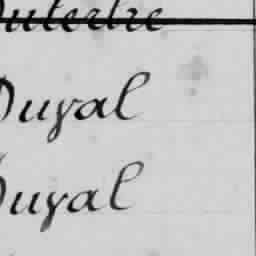 Dutertre
Duyal
Duyal